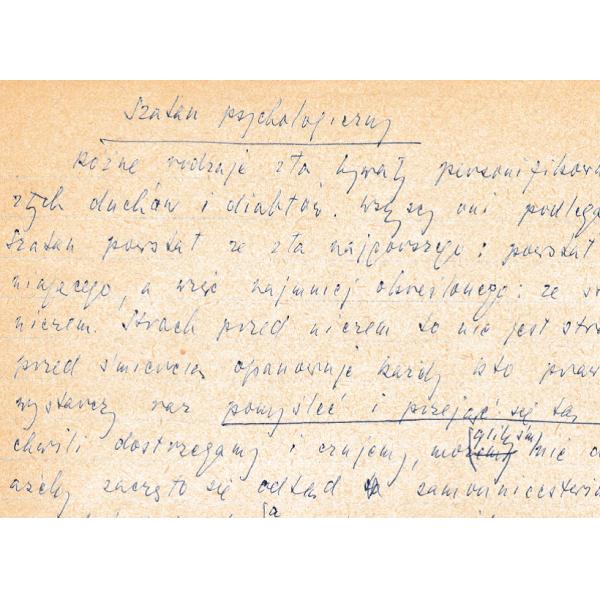 Szatan psychologiczny
Różne rodzaje zła bywały personifikow
złych duchów i diabłów. Wszyscy oni podleg
Szatan powstał ze zła najgorszego: powstał
niającego, a więc najmniej określonego: ze st
niczem. Strach przed niczem to nie jest stra
przed śmiercią opanowuje każdy kto praw
wystarczy raz pomyśleć i przejąć się tą
chwili dostrzegamy i czujemy, mo
ażeby zaczęto się odtąd samounicestwia